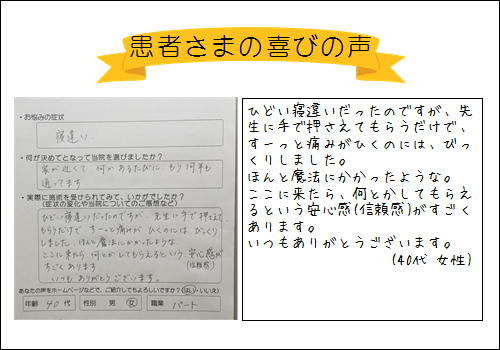 患者さまの喜びの声
・お悩みの症状
寝違い
・何が決めてとなって当院を選びましたか?
家が近くて 何かあるたびに、もう何年も
通ってます
・実際に施術を受けられてみて、いかがでしたか?
(症状の変化や当院についてのご感想など)
ひどい寝違いだったのですが、先生に手で押さえて
もらうだけで すーっと痛みが ひくのには びっくり
しました。ほんと魔法にかかったような。
ここに来たら 何とかしてもらえるという 安心感が
(信頼感)
すごくあります
いつもありがとうございます。
あなたの声をホームページなどで、ご紹介してもよろしいですか?(はい・いいえ)
年齢 40代 性別 男 女 職業 パート
ひどい寝違いだったのですが、先
生に手で押さえてもらうだけで、
すーっと痛みがひくのには、びっ
くりしました。
ほんと魔法にかかったような。
ここに来たら、何とかしてもらえ
るという安心感(信頼感)がすごく
あります。
いつもありがとうございます。
(40代 女性)